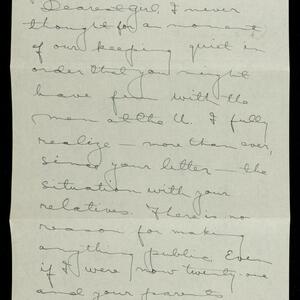 Dearest Girl. I never
thought for a moment
of our keeping quiet in
order that you might
have fun with the
men at the U. I fully
realize — more than ever,
since your letter — the
situation with your
relatives. There is no
reason for making
anything public. Even
if I were now twenty-one
and your parents